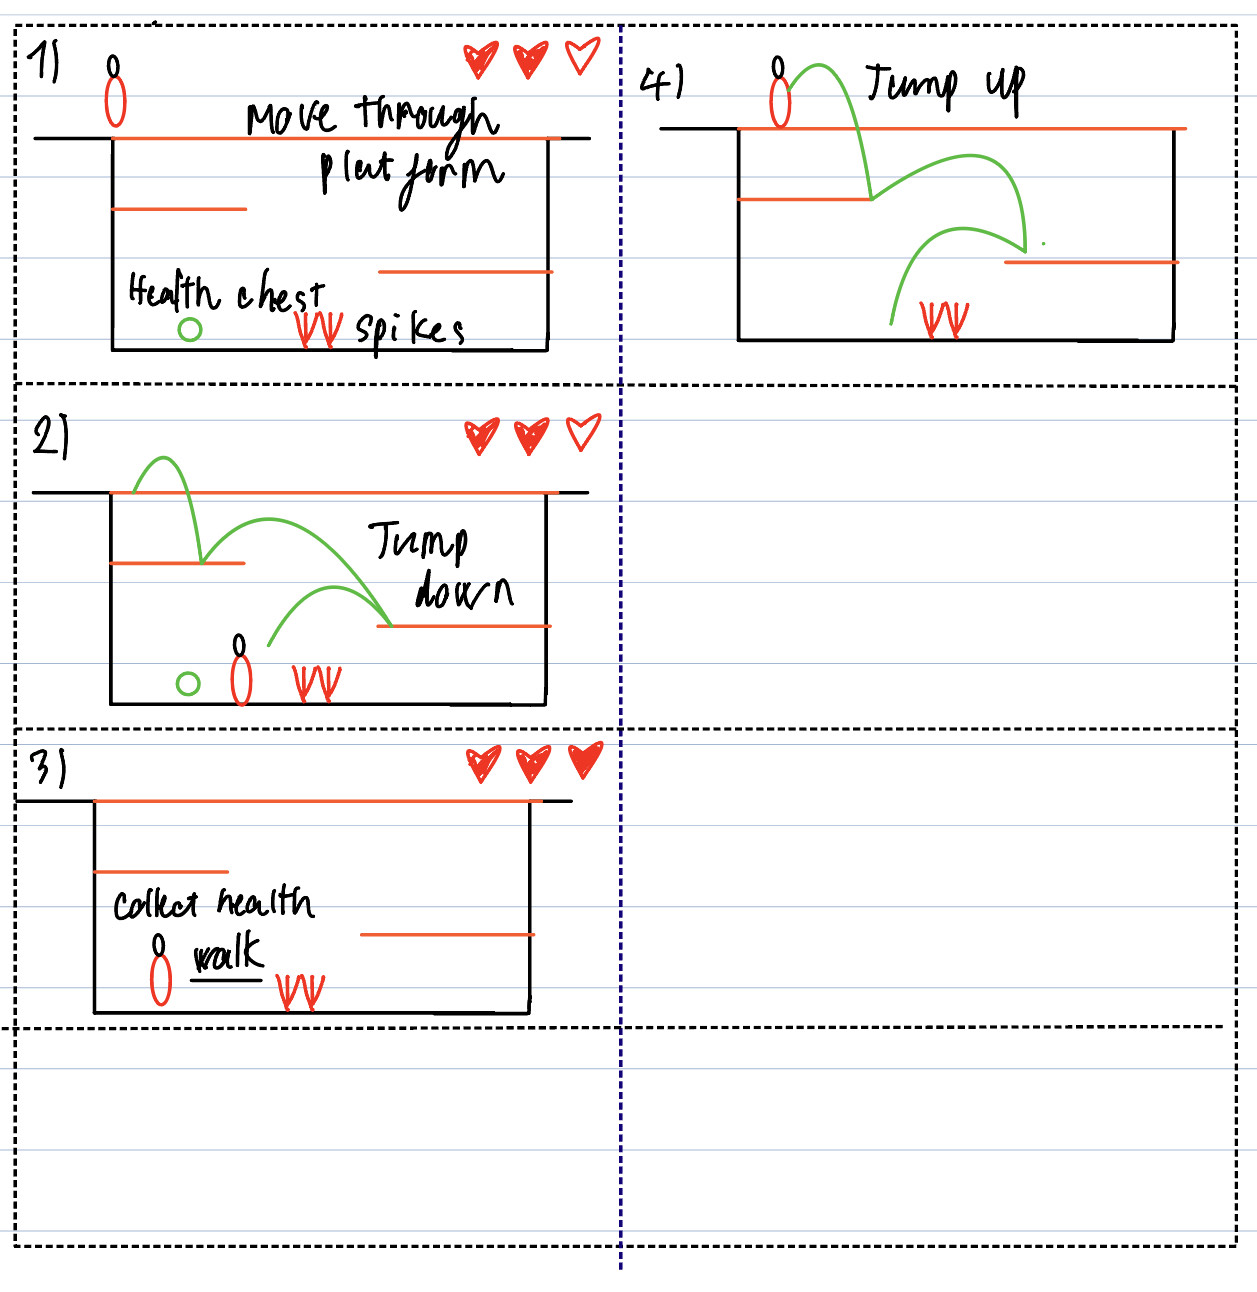 1)
Move through
platform
Health chest
spikes
2)
Jump
down
3)
Collect health
walk
4)
Jump up